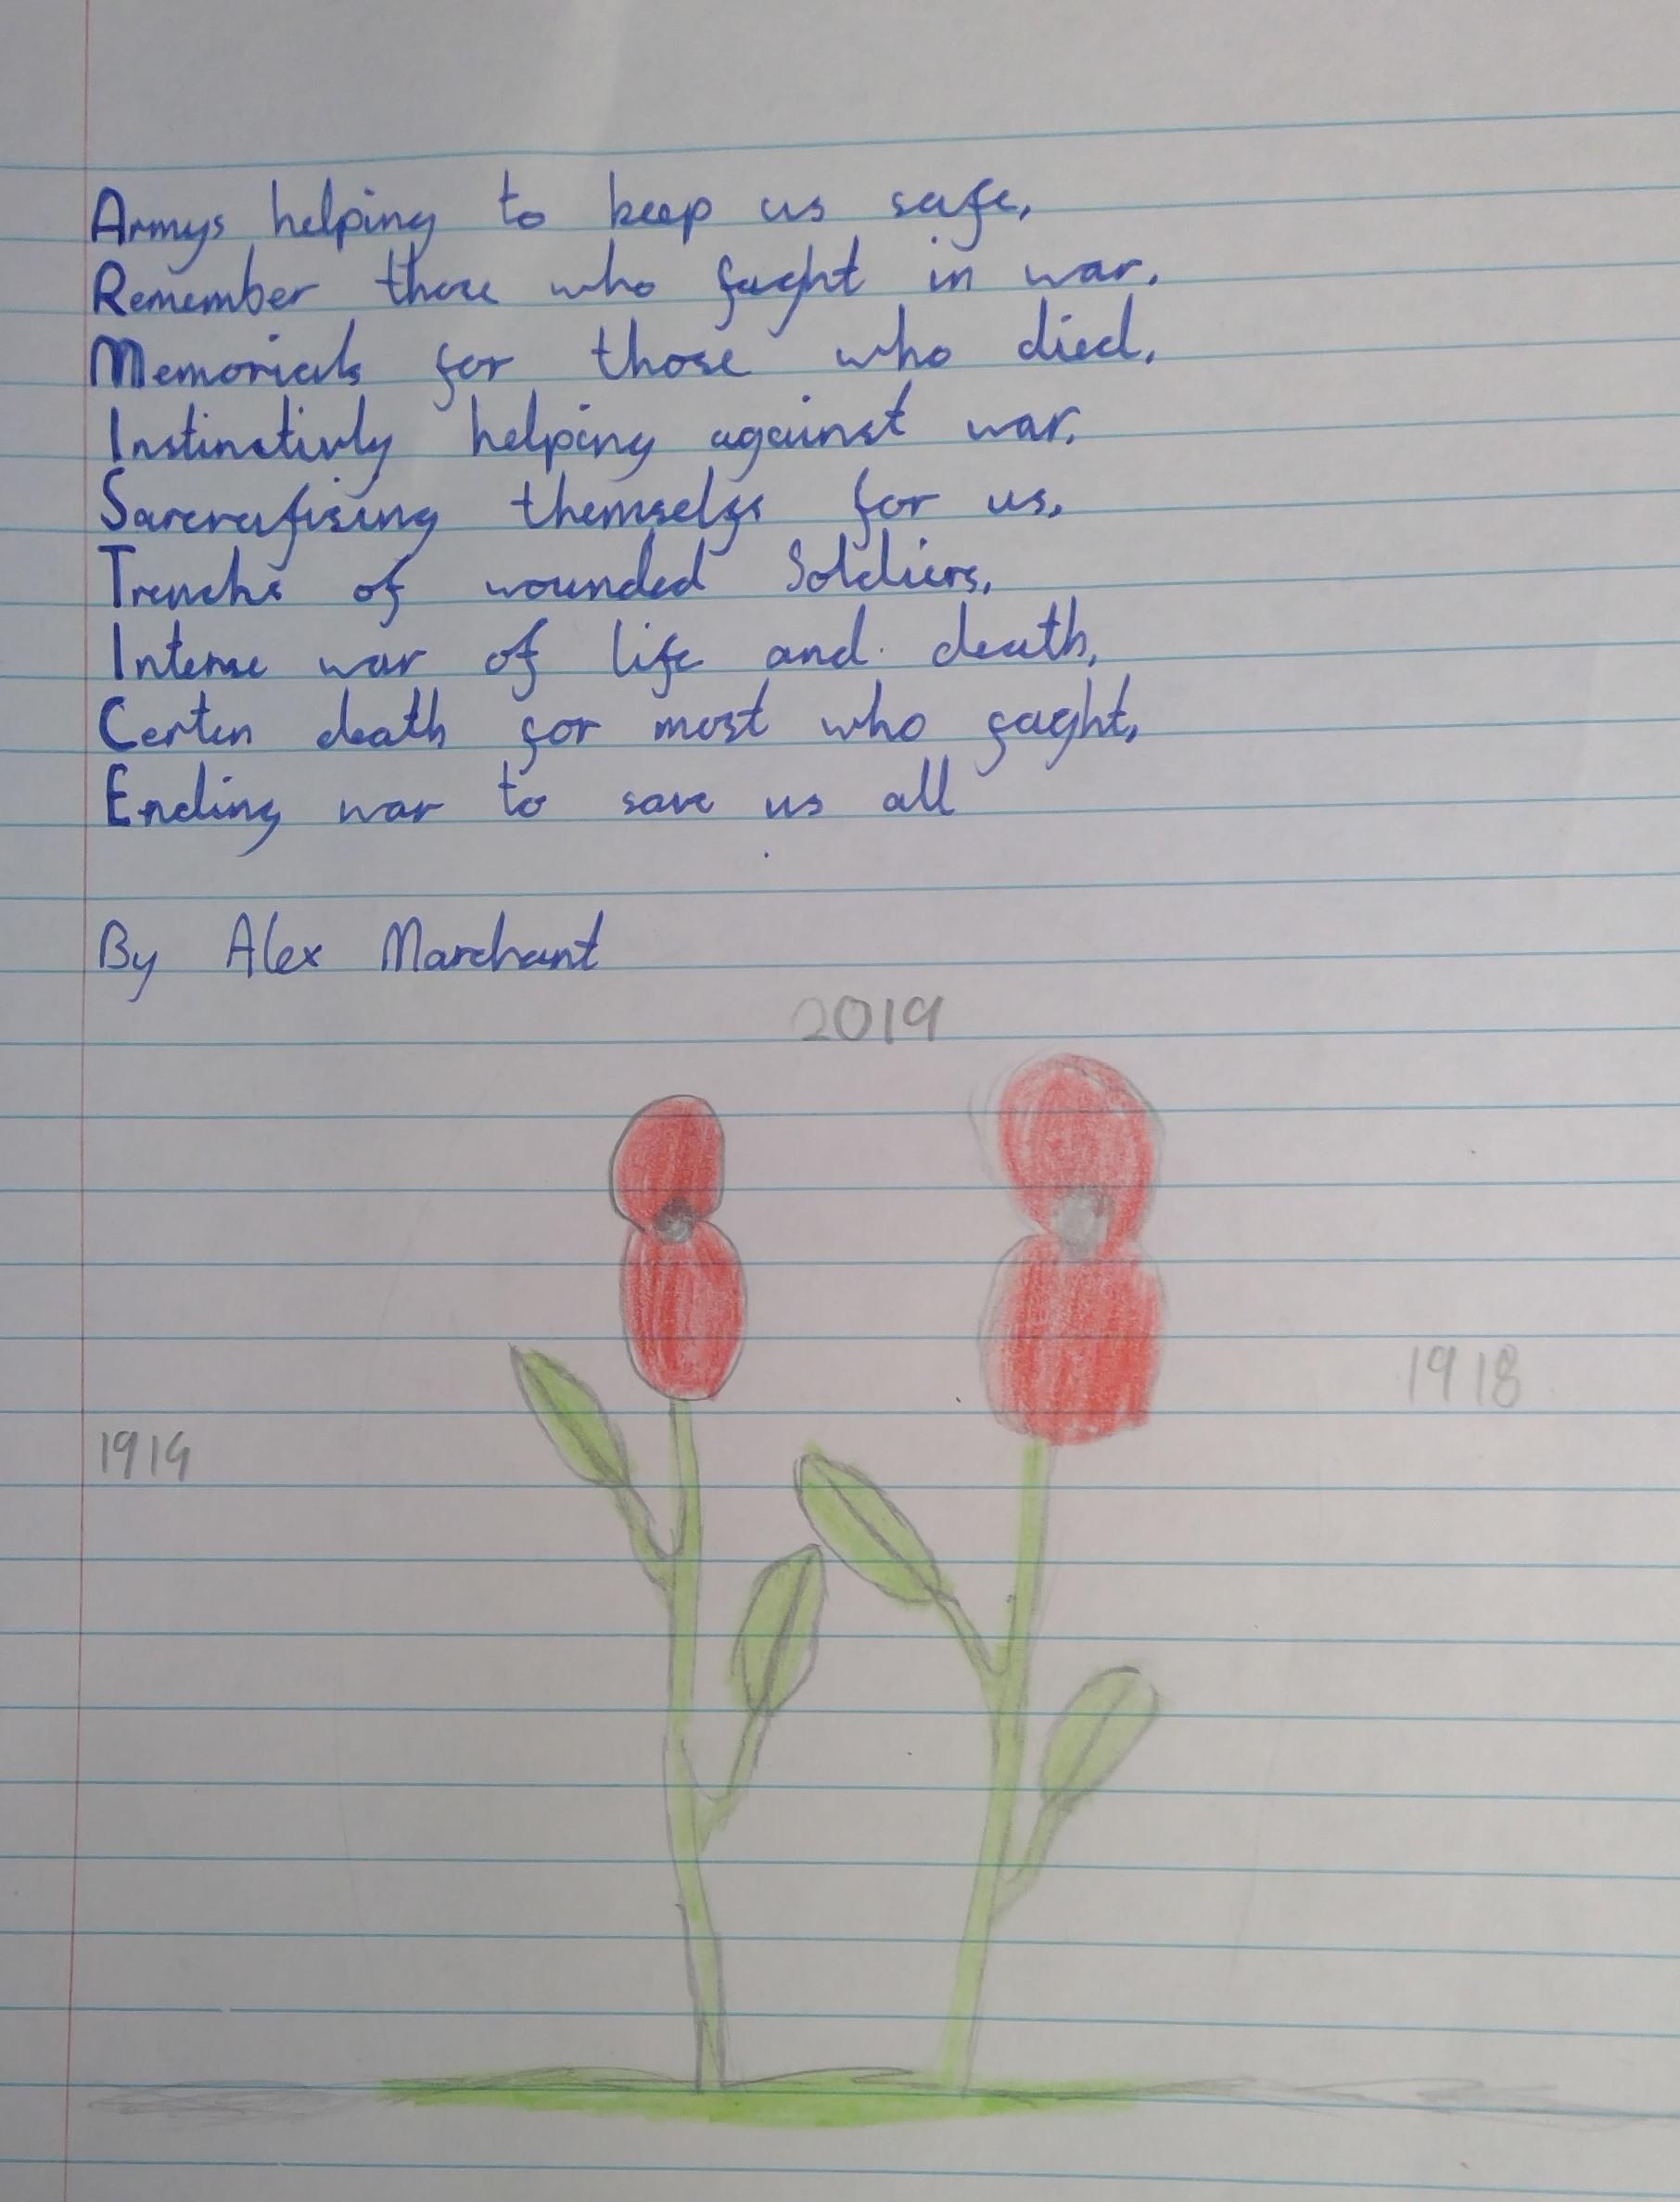 Armys helping to keep us safe,
Remember those who faght in war,
Memorials for those who died,
Instinctivly helping against war,
Sarcrafising themselfs for us,
Trenchs of wounded Soldiers,
Intense war of life and death,
Certen death for most who faght,
Ending war to save us all
By Alex Marchant
2019
1918
1914